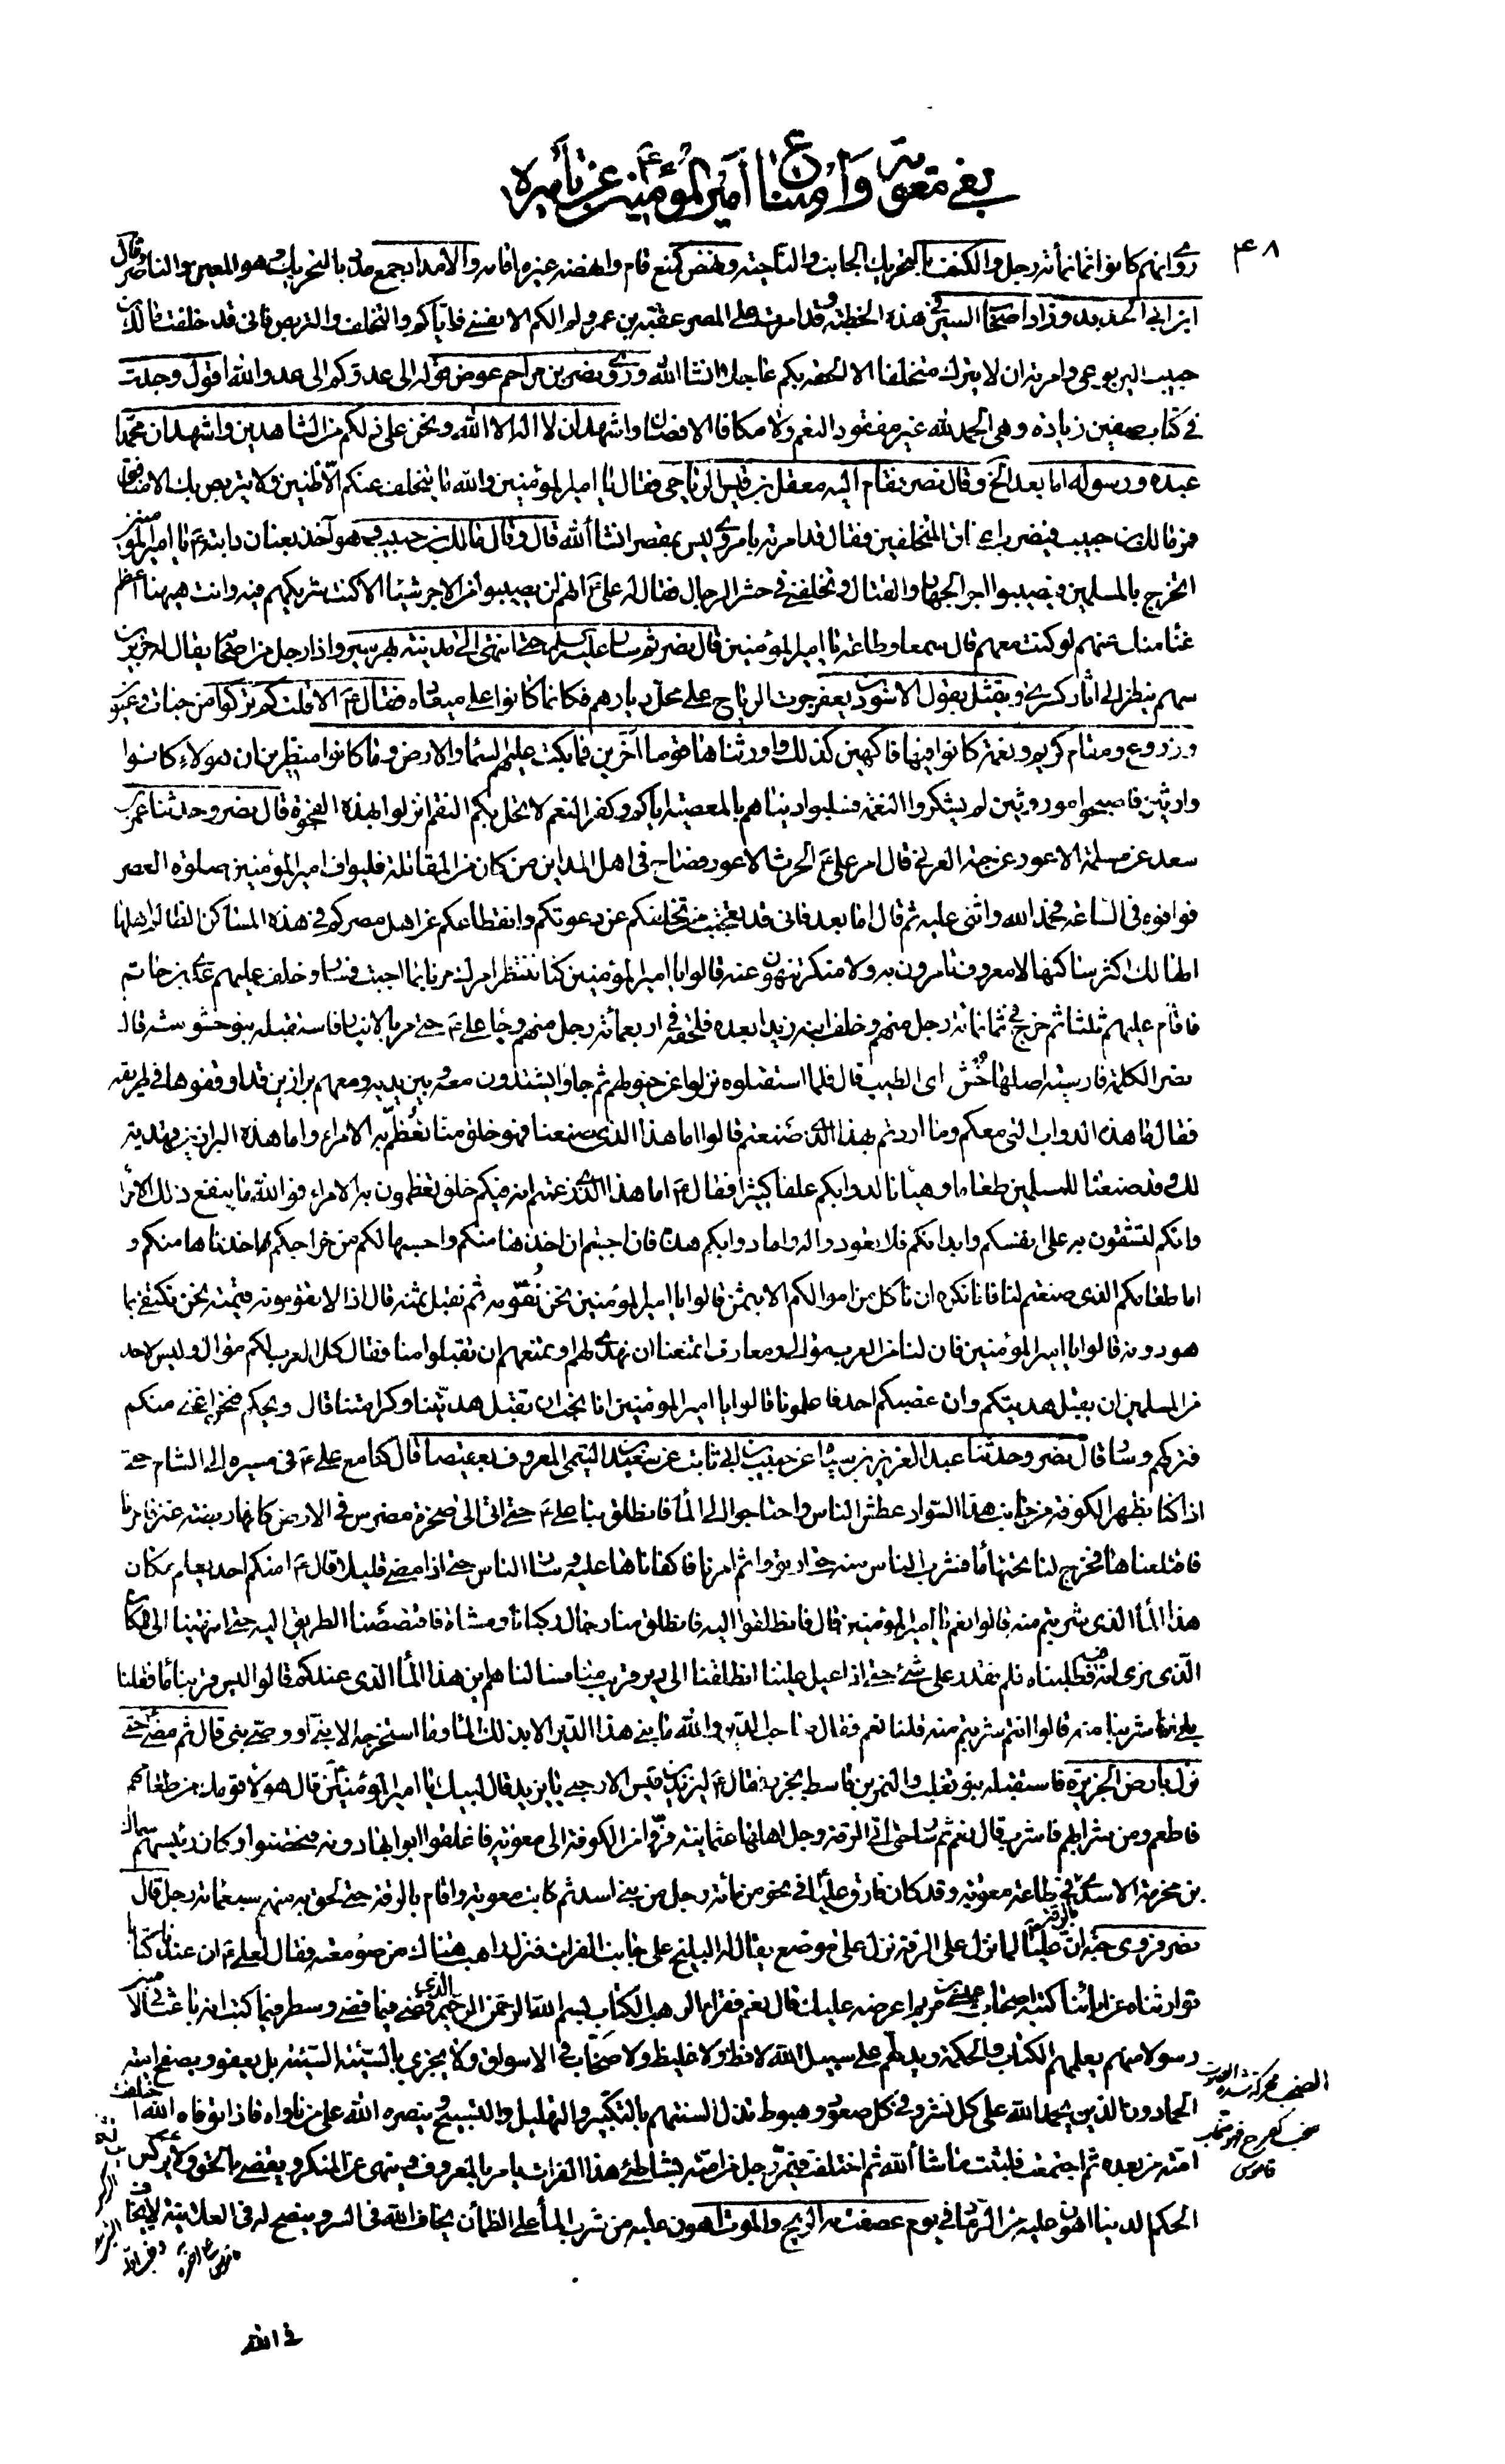 بغى معوية وامتناع أمير المؤمنين ع عن تأميره
٤٨
روى انهم كانوا ثمانمأة رجل والكنف بالتحريك الجانب والناحية ونهض كمنع قام وانهضه غيره اقامه والامداد جمع مدد بالتحريك وهو المعين والناصر وقال
ابن ابي الحديد وزاد اصحاب السير في هذه الخطبة وقد امرت على المصر عقبة بن عمرو ولم الكم الا نفسي فاياكم والتخلف والتربص فاني قد خلفت مالك بن
حبيب اليربوعي وامرته ان لا يترك متخلفا الا الحقه بكم عاجلا انشاء الله وروى نصر بن مزاحم عوض قوله الى عدوكم الى عدو الله اقول وجدت
في كتاب صفين زيادة وهي الحمد لله غير مفقود النعم ولا مكافا الافضال واشهد ان لا اله الا الله ونحن على ذلكم من الشاهدين واشهد ان محمدا
عبده ورسوله اما بعد الخ وقال نصر فقام اليه معقل بن قيس الرياحي فقال يا امير المؤمنين والله ما يتخلف عنك الا ظنين ولا يتربص بك الا منافق
فمر مالك بن حبيب فيضرب اعناق المتخلفين فقال قد امرته بامري وليس بمقصر انشاء الله قال وقال مالك بن حبيب وهو آخذ بعنان دابته ع يا امير المؤمنين
اتخرج بالمسلمين فيصيبوا اجر الجهاد والقتال وتخلفني في حشر الرجال فقال له علي ع انهم لن يصيبوا من الاجر شيئا الا كنت شريكهم فيه وانت هيهنا اعظم
غناء منك عنهم لو كنت معهم قال سمعا وطاعة يا امير المؤمنين قال نصر ثم سار عليه السلام حتى انتهى الى مدينة بهرسير واذا رجل من اصحابه يقال له حر بن
سهم ينظر الى اثار كسرى ويتمثل بقول الاسود بن يعفر جرت الرياح على محل ديارهم فكانما كانوا على ميعاد فقال ع الا قلت كم تركوا من جنات وعيون
وزروع ومقام كريم ونعمة كانوا فيها فاكهين كذلك واورثناها قوما آخرين فما بكت عليهم السماء والارض وما كانوا منظرين ان هولاء كانوا
وارثين فاصبحوا موروثين لم يشكروا النعمة فسلبوا دنياهم بالمعصية اياكم وكفر النعم لا تحل بكم النقم انزلوا بهذه الفجوة قال نصر وحدثنا عمر بن
سعد عن مسلمة الاعور عن حبة العرني قال امر علي ع الحرث الاعور فصاح في اهل المداين من كان من المقاتلة فليواف امير المؤمنين صلوة العصر
فوافوه في الساعة فحمد الله واثنى عليه ثم قال اما بعد فاني قد تعجبت من تخلفكم عن دعوتكم وانقطاعكم عن اهل مصركم في هذه المساكن الظالم اهلها
الهالك اكثر ساكنها لا معروف تامرون به ولا منكر تنهون عنه قالوا يا امير المؤمنين كنا ننتظر امرك مرنا بما احببت فسار وخلف عليهم عدي بن حاتم
فاقام عليهم ثلثا ثم خرج في ثمانمائة رجل منهم وخلف ابنه زيدا بعده فلحقه في اربعمأة رجل منهم وجاء علي ع حتى مر بالانبار فاستقبله بنو خشنوشك قال
نصر الكلمة فارسية اصلها خُش اى الطيب قال فلما استقبلوه نزلوا عن خيولهم ثم جاوا يشتدون معه بين يديه ومعهم براذين قد اوقفوها في طريقه
فقال ما هذه الدواب التي معكم وما اردتم بهذا الذي صنعتم قالوا اما هذا الذي صنعنا فهو خلق منا نعظّم به الامراء واما هذه البراذين فهدية
لك وقد صنعنا للمسلمين طعاما وهيأنا لدوابكم علفا كثيرا فقال ع اما هذا الذي زعمتم انه فيكم خلق تعظمون به الامراء فو الله ما ينفع ذلك الامراء
وانكم لتشقون به على انفسكم وابدانكم فلا تعودوا له واما دوابكم هذه فان احببتم ان اخذناها منكم واحسبها لكم من خراجكم اخذناها منكم و
اما طعامكم الذي صنعتم لنا فانا نكره ان ناكل من اموالكم الا بثمن قالوا يا امير المؤمنين نحن نُقوّمه ثم نقبل ثمنه قال اذا لا تقومونه قيمته نحن نكتفي بما
هو دونه قالوا يا امير المؤمنين فان لنا من العرب موالي ومعارف اتمنعنا ان نهدى لهم او تمنعهم ان يقبلوا منا فقال كل العرب لكم موال وليس لاحد
من المسلمين ان يقبل هديتكم وان غصبكم احد فاعلمونا قالوا يا امير المؤمنين انا نحب ان تقبل هديتنا وكرامتنا قال ويحكم فنحن اغنى منكم
فتركهم وسار قال نصر وحدثنا عبد العزيز بن سياه عن حبيب بن ابي ثابت عن سعيد التيمى المعروف بعقيصا قال كنا مع علي ع في مسيره الى الشام حتى
اذا كنا بظهر الكوفة من جانب هذا السواد عطش الناس واحتاجوا الى الماء فانطلق بنا علي ع حتى اتى الى صخرة مضرس في الارض كانها ربضة عنز فامرنا
فاقتلعناها فخرج لنا تحتها ماء فشرب الناس منه حتى ارتووا ثم امرنا فاكفاناها عليه وسار الناس حتى اذا مضى قليلا قال ع امنكم احد يعلم بمكان
هذا الماء الذي شربتم منه قالوا نعم يا امير المؤمنين قال فانطلقوا اليه فانطلق منا رجال ركبانا ومشاة فاقتصصنا الطريق اليه حتى انتهينا الى المكان
الّذى نرى انه فيه فطلبناه فلم نقدر على شئ حتى اذا عيل علينا انطلقنا الى دير قريب منا فسالناهم اين هذا الماء الذي عندكم قالوا ليس قربنا ماء فقلنا
بلى نحن شربنا منه قالوا انتم شربتم منه قلنا نعم فقال صاحب الدير والله ما بني هذا الدير الا بذلك الماء وما استخرجه الا نبي او وصي نبي قال ثم مضى حتى
نزل بارض الجزيرة فاستقبله بنو تغلب والنمر بن قاسط بجزور فقال ع ليزيد بن قيس الارحبي يا يزيد قال لبيك يا امير المؤمنين قال هولاء قومك من طعامهم
فاطعم ومن شرابهم فاشرب قال نعم ثم سار حتى اتى الرقة وجل اهلها عثمانية فروا من الكوفة الى معوية فاغلقوا ابوابها دونه وتحصنوا وكان رئيسهم سماك
بن مخرمة الاسدي في طاعة معوية وقد كان فارق عليا في نحو من مأة رجل من بني اسد ثم كاتب معوية واقام بالرقة حتى لحق به منهم سبعمأة رجل قال
نصر فروى حبة ان عليا لما نزل على الرقة نزل على موضع يقال له البليخ على جانب الفرات فنزل راهب هناك من صومعته فقال لعلي ع ان عندنا كتابا
توارثناه عن ابائنا كتبه اصحاب عيسى بن مريم اعرضه عليك قال نعم فقرا الراهب الكتاب بسم الله الرحمن الرحيم الذي قضى فيما قضى وسطر فيما كتب انه باعث في الاميين
رسولا منهم يعلمهم الكتاب والحكمة ويدلهم على سبيل الله لا فظ ولا غليظ ولا صخاب في الاسواق ولا يجزي بالسيئة السيئة بل يعفو ويصفح امته
الحمادون الذين يحمدون الله على كل نشز وفي كل صعود وهبوط تذل السنتهم بالتكبير والتهليل والتسبيح وينصره الله على من ناواه فاذا توفاه الله اختلفت
امته من بعده ثم اجتمعت فلبثت ما شاء الله ثم اختلفت فيمر رجل من امته بشاطئ هذا الفرات يامر بالمعروف وينهى عن المنكر ويقضى بالحق ولا يركس
الحكم الدنيا اهون عليه من الرماد في يوم عصفت به الريح والموت اهون عليه من شرب الماء على الظمأن يخاف الله في السر وينصح له في العلانية لا يخاف
الصخب محركة شدة الصوت
صخب كفرح فهو صخاب
قاموس
في الله